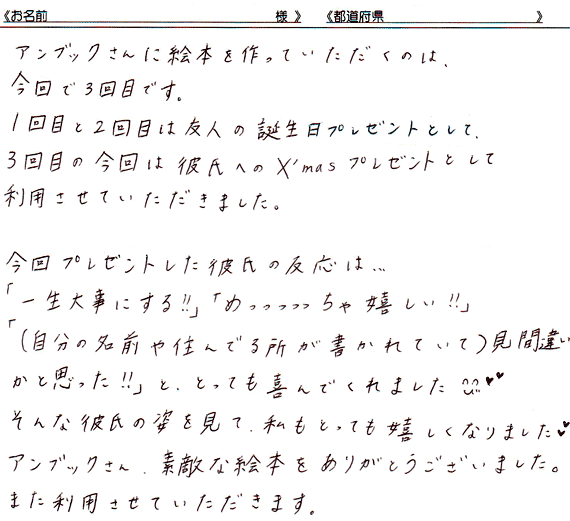 《お名前 様 》 《都道府県 》
アンブックさんに絵本を作っていただくのは、
今回で3回目です。
1回目と2回目は友人の誕生日プレゼントとして、
3回目の今回は彼氏へのX'masプレゼントとして
利用させていただきました。
今回プレゼントした彼氏の反応は…
「一生大事にする!!」「めっっっっっちゃ嬉しい!!」
「(自分の名前や住んでる所が書かれていて)見間違い
かと思った!!」と、とっても喜んでくれました
そんな彼氏の姿を見て、私もとっても嬉しくなりました
アンブックさん、素敵な絵本をありがとうございました。
また利用させていただきます。